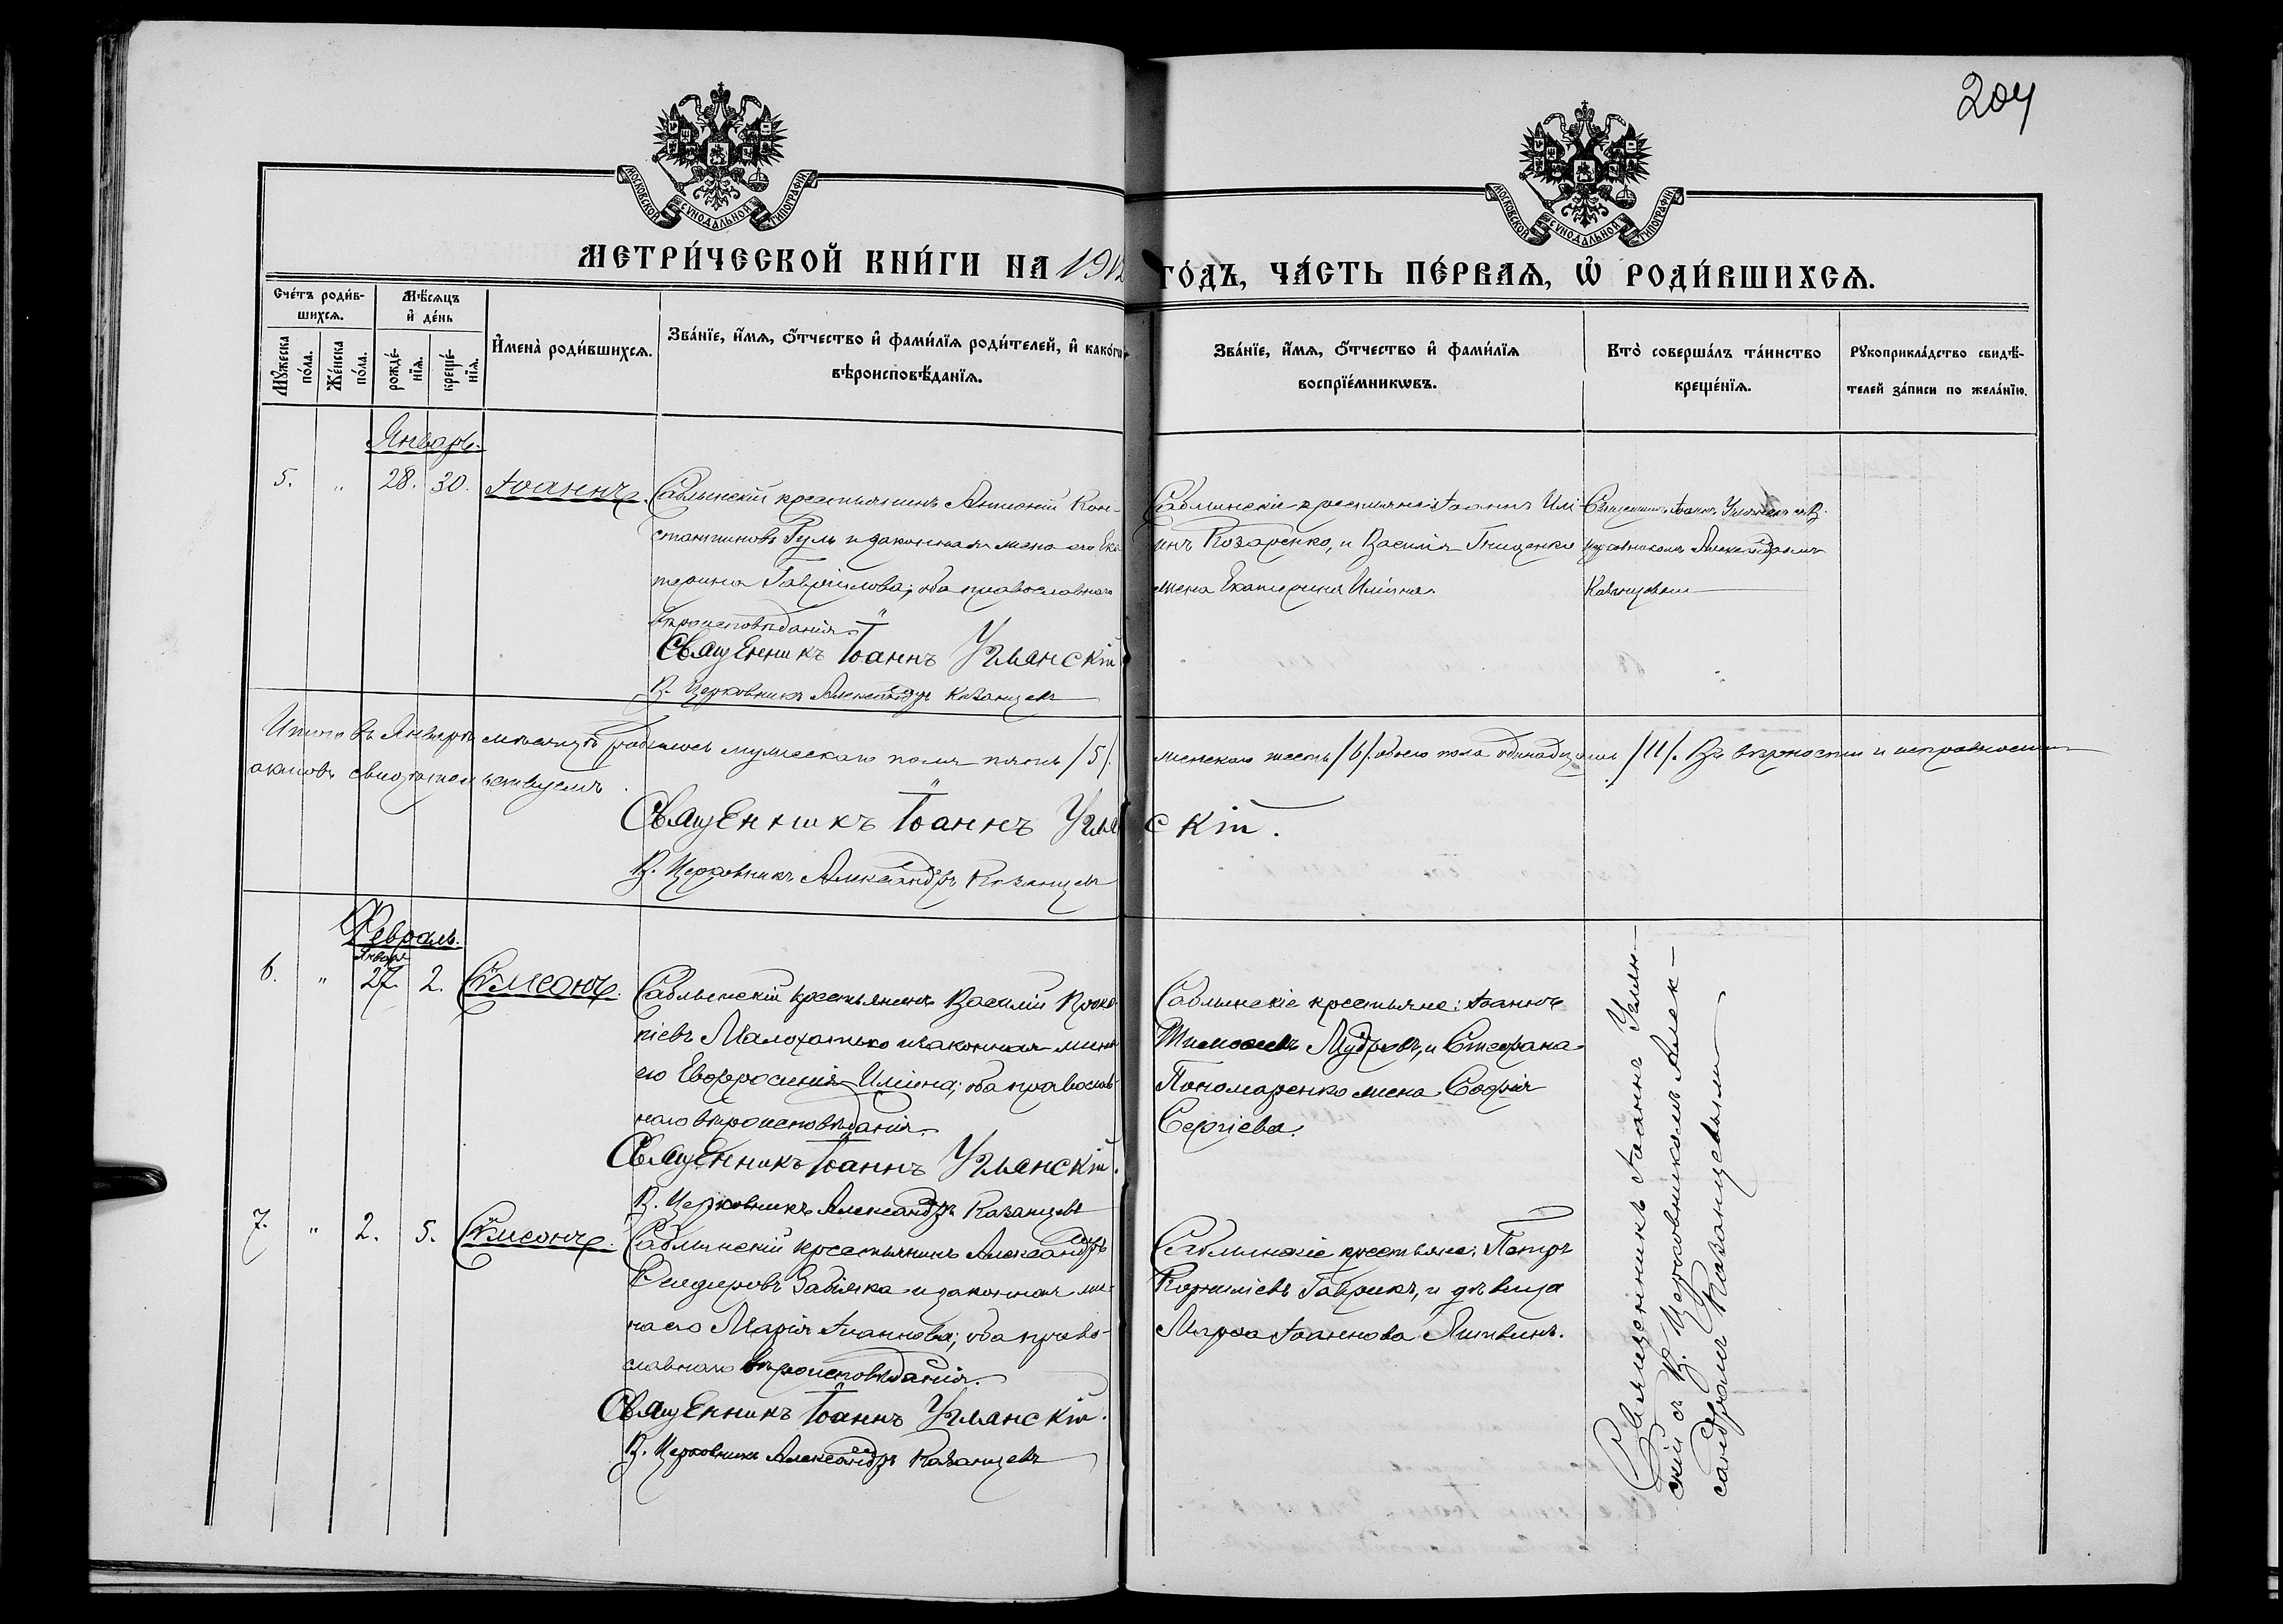 204
МОСКОВСКОЙ СѴНОДАЛЬНОЙ ТИПОГРАФІИ
МОСКОВСКОЙ СѴНОДАЛЬНОЙ ТИПОГРАФІИ
МЕТРИ́ЧЕСКОЙ КНИ́ГИ НА 1912 ГО́ДЪ, ЧА́СТЬ ПЕ́РВАЯ, Ѡ РОДИ́ВШИХСЯ.
Сче́тъ роди́в-
шихся.
Мꙋжеска
по́ла.
Же́нска
по́ла.
Мѣ́сяцъ
и҆ де́нь
рожде́-
нїя.
креще́-
нїя.
И҆мена̀ роди́вшихся.
Зва́нїе, и҆́мя, ѻ҆́тчество и҆ фами́лїя роди́телей, и҆ како́гѡ
вѣроисповѣ́данїя.
Зва́нїе, и҆́мя, ѻ҆́тчество и҆ фами́лїя
воспрїе́мникѡвъ.
Кто̀ соверша́лъ та́инство
креще́нїя.
Рꙋкоприкла́дство свидѣ́-
телей за́писи по жела́нїю.
Январь.
5. " 28. 30. Іоаннъ.
Саблинскій крестьянинъ Антоній Кон-
стантиновъ Гуль и законная жена его Ека
терина Гавріилова; оба православнаго
вѣроисповѣданія.
Священникъ Іоаннъ Угмянскій
В. Церковникъ Александръ Казанцевъ
Саблинскіе крестьяне: Іоаннъ Илі-
инъ Козаренко, и Василія Гнищенко
жена Екатерина Иліина.
Священникъ Іоаннъ с В.
Церковникомъ Александромъ
Казанцевымъ
Итого въ Январѣ мѣсяцѣ родилось мужескаго пола пять /5/. женскаго шесть /6/. обоего пола одинадцать /11/. Въ вѣрности и исправности
актовъ свидѣтельствуемъ
Священникъ Іоаннъ Угмянскій.
В. Церковникъ Александръ Казанцевъ
Февраль.
Января
6. " 27. 2. Сѵмеонъ.
Саблинскій крестьянинъ Василій Проко-
піевъ Малохатько и законная жена
его Евфросинія Иліина; оба православ-
наго вѣроисповѣданія.
Священникъ Іоаннъ Угмянскій.
В. Церковникъ Александръ Казанцевъ
Саблинскіе крестьяне: Іоаннъ
Тимоѳеевъ Мудровъ, и Стефана
Пономаренко жена София
Сергіева.
7. " 2. 5. Сѵмеонъ.
Саблинскій крестьянинъ Александръ
Забіяка и законная же-
на его Марія Іоаннова; оба право-
славнаго вѣроисповѣданія.
Священникъ Іоаннъ Угмянскій.
В. Церковникъ Александръ Казанцевъ
Саблинскіе крестьяне: Петръ
Корниліевъ Гаврикъ, и дѣвица
Марѳа Іоаннова Литвинъ.
Священникъ Іоаннъ Угмян-
скій съ В. Церковникомъ Алек-
сандромъ Казанцевымъ